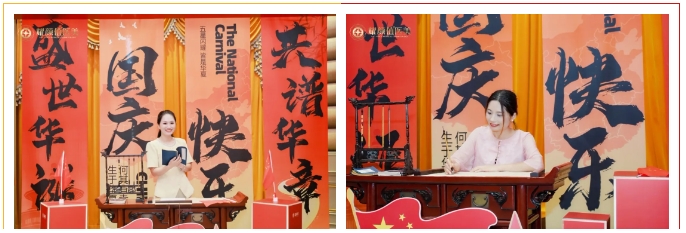 盛世华诞
国庆
五星闪耀 皆是华夏
The National
Carnival
快乐
共谱华章
世华
国庆
Carnival
快乐